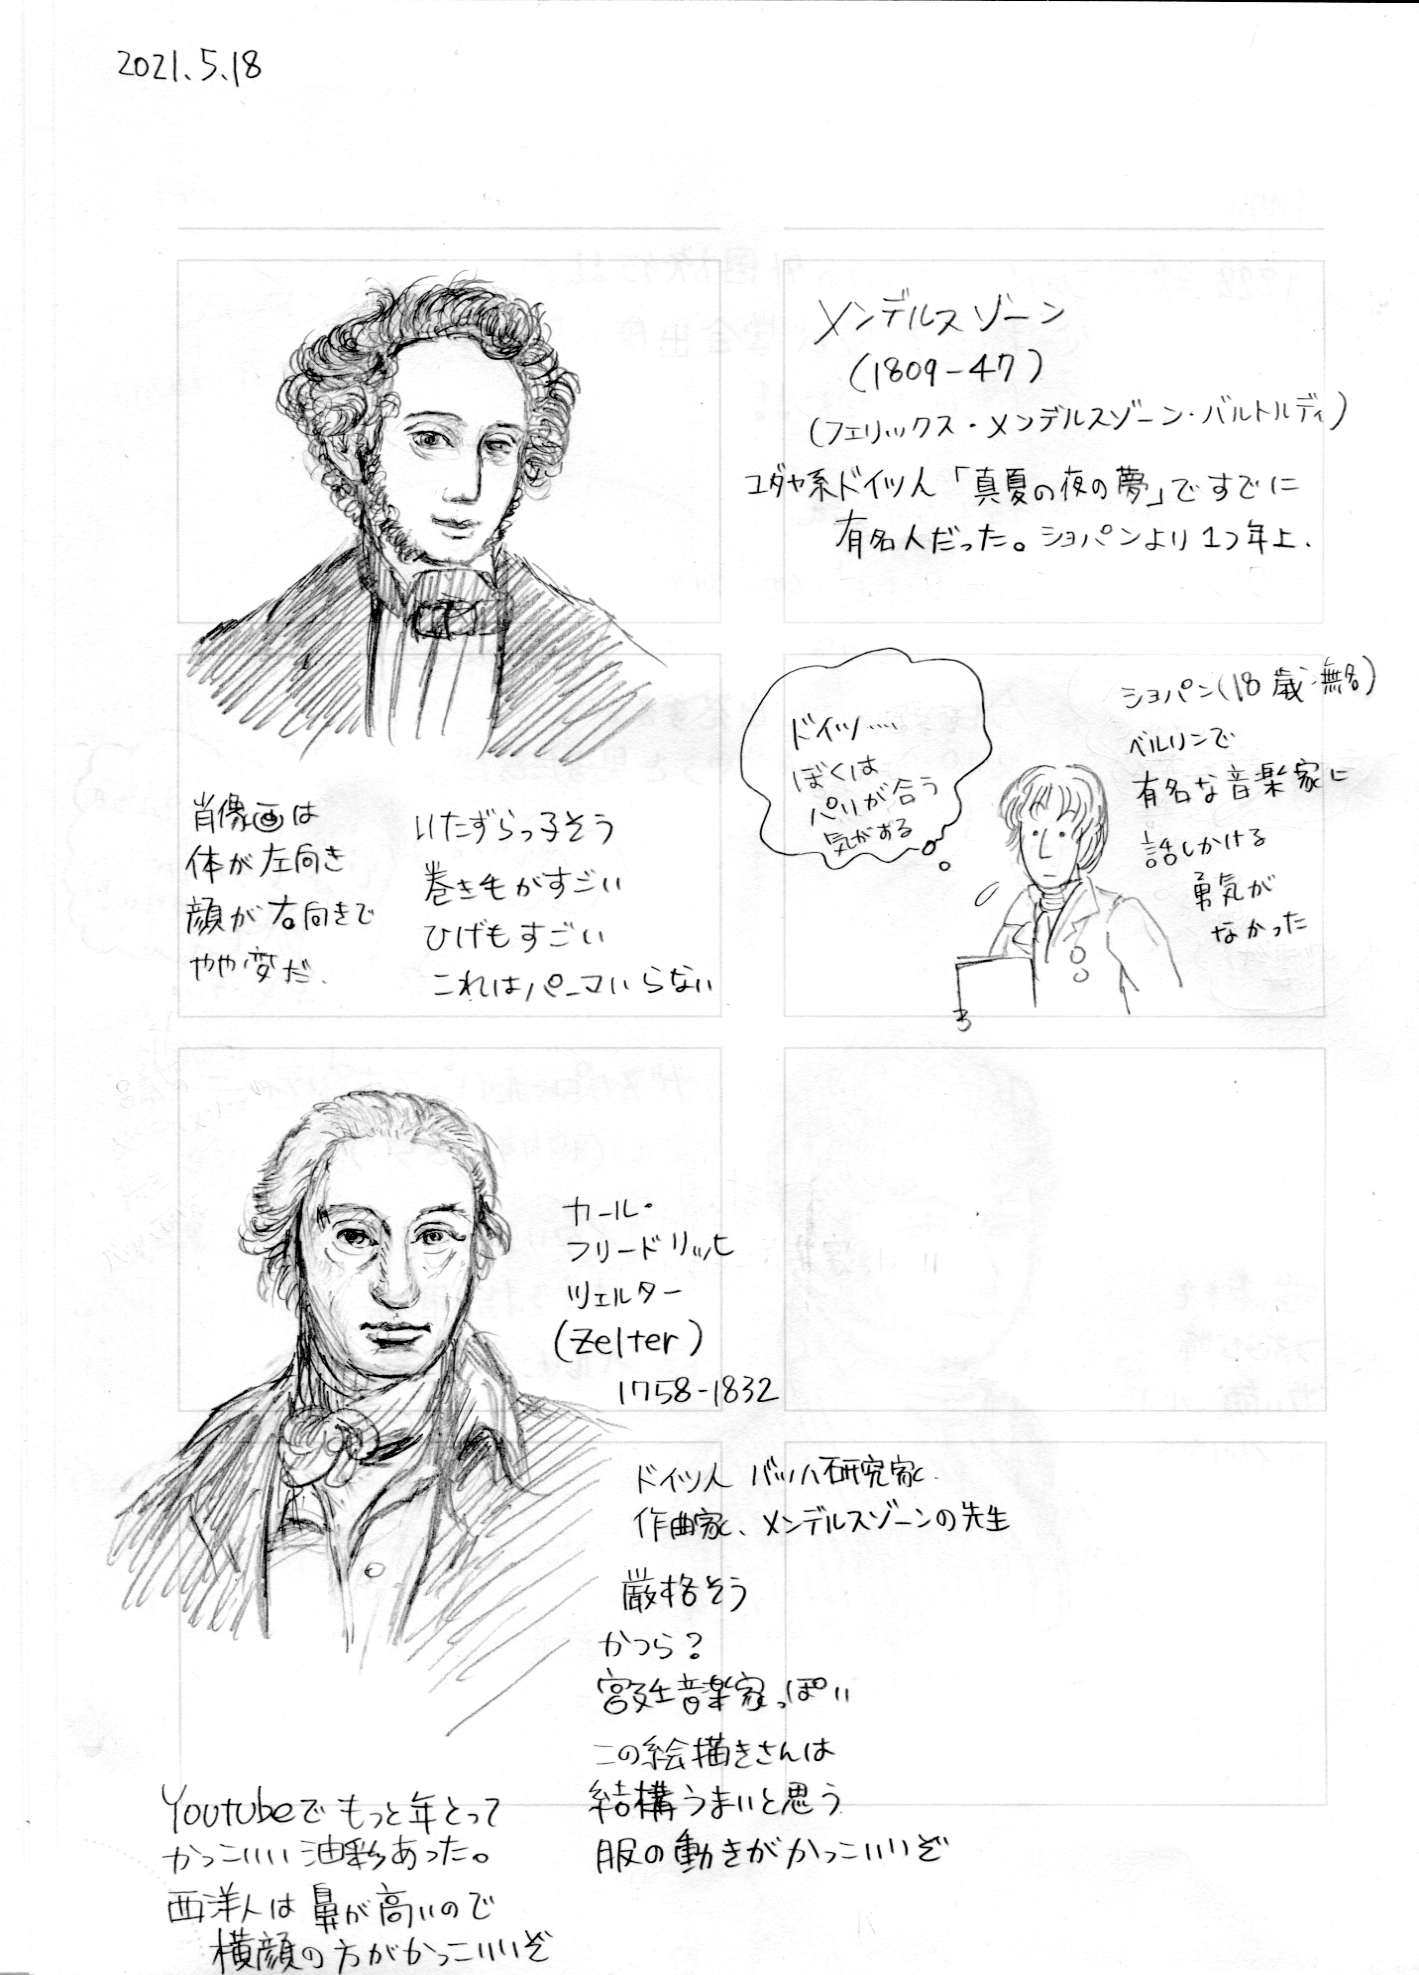 2021.5.18
メンデルスゾーン
(1809-47)
(フェリックス・メンデルスゾーン・バルトルディ)
ユダヤ系ドイツ人「真夏の夜の夢」ですでに
有名人だった。ショパンより1つ年上.
ドイツ....
ぼくは
パリが合う
気がする
ショパン(18歳・無名)
ベルリンで
有名な音楽家に
話しかける
勇気が
なかった
肖像画は
体が左向き
顔が右向きで
やや変だ.
いたずらっ子そう
巻き毛がすごい
ひげもすごい
これはパーマいらない
カール・
フリードリッヒ
ツェルター
(Zelter)
1758-1832
ドイツ人 バッハ研究家.
作曲家、メンデルスゾーンの先生
厳格そう
かつら?
宮廷音楽家っぽい
この絵描きさんは
結構うまいと思う
服の動きがかっこいいぞ
Youtubeでもっと年とって
かっこいい油彩あった。
西洋人は鼻が高いので
横顔の方がかっこいいぞ